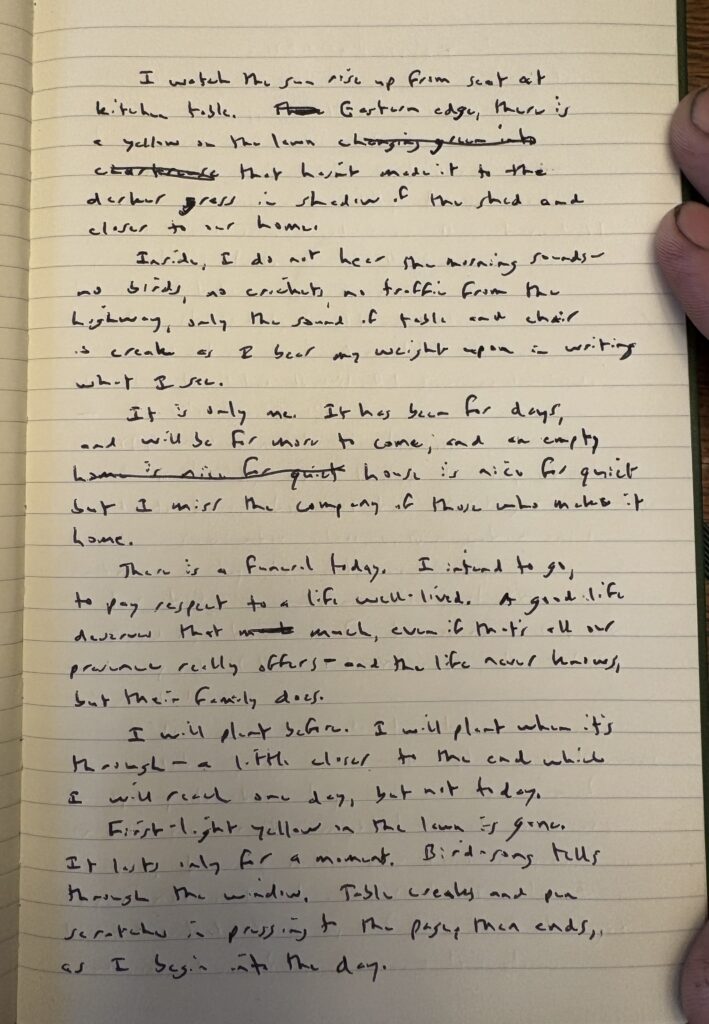 I watch the sun rise up from seat at
kitchen table. Eastern edge, there is
a yellow on the lawn changing green into
chartreuse that hasn't made it to the
darker grass in shadow of the shed and
closer to our home.
Inside, I do not hear the morning sounds—
no birds, no crickets, no traffic from the
highway, only the sound of table and chair
is creak as I bear my weight upon in writing
what I see.
It is only me. It has been for days,
and will be for more to come; and an empty
home is nice for quiet house is nice for quiet
but I miss the company of those who makes it
home.
There is a funeral today. I intend to go,
to pay respect to a life well-lived. A good life
deserves that much, even if that's all our
presence really offers — and the life never knows,
but their family does.
I will plant before. I will plant when it's
through — a little closer to the end which
I will reach one day, but not today.
First-light yellow on the lawn is gone.
It lasts only for a moment. Bird-song tells
through the window. Table creaks and pen
scratches in pressing to the page, then ends,
as I begin into the day.